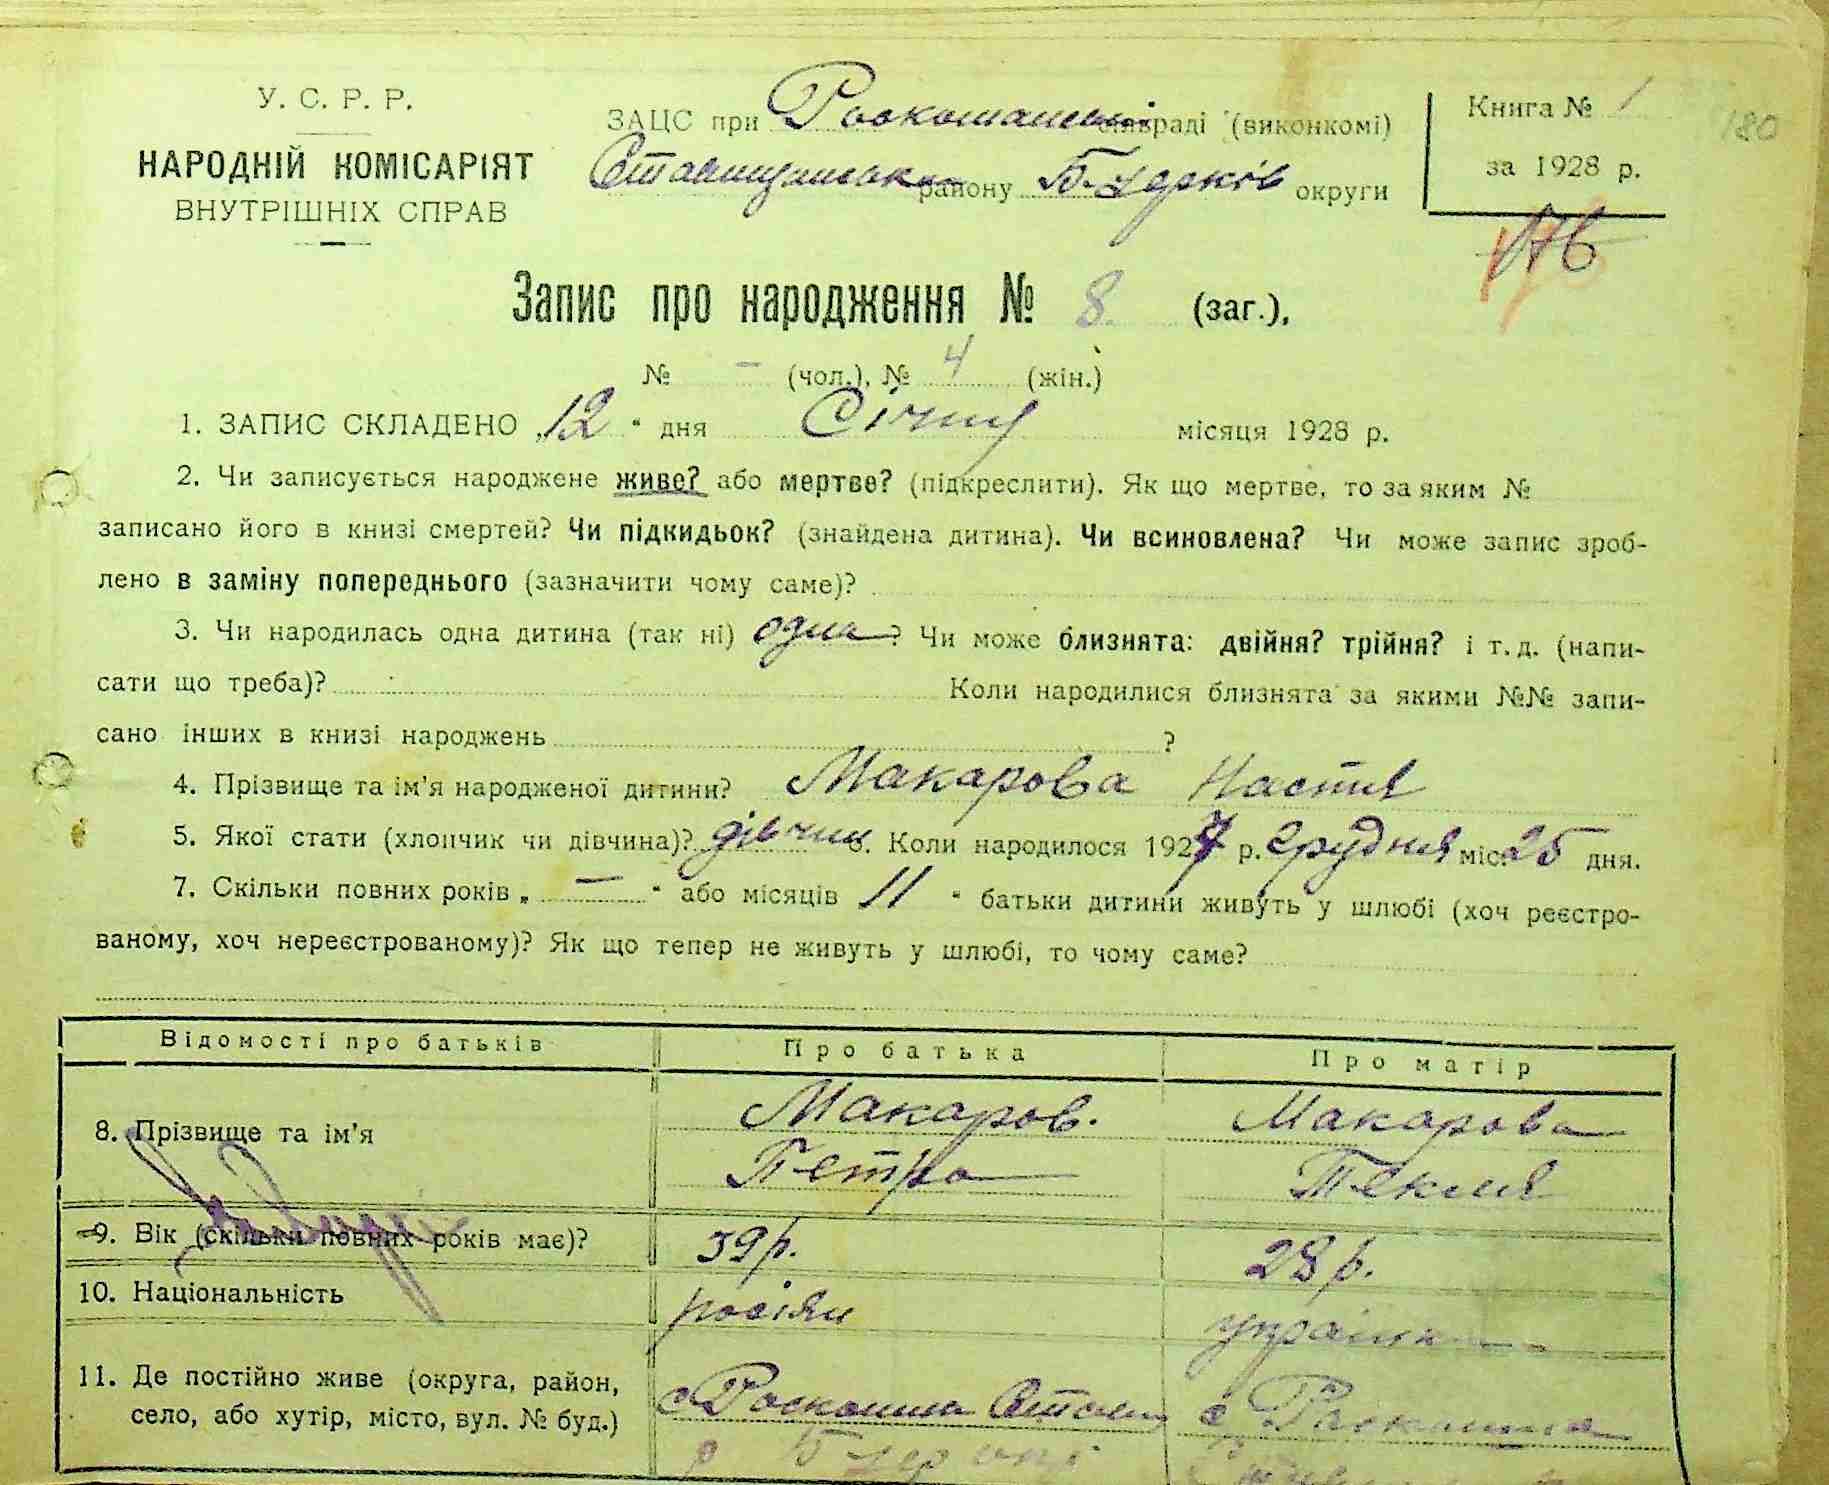 У. С. Р. Р.
НАРОДНІЙ КОМІСАРІЯТ
ВНУТРІШНІХ СПРАВ
ЗАЦС при Роскошанській сільраді (виконкомі)
Ставищанськ району Б-Церків округи
Книга № 1
за 1928 р.
180
176
Запис про народження № 8 (заг.),
№ — (чол.), № 4 (жін.)
1. ЗАПИС СКЛАДЕНО „12“ дня Січня місяця 1928 р.
2. Чи записується народжене живе? або мертве? (підкреслити). Як що мертве, то за яким №
записано його в книзі смертей? Чи підкидьок? (знайдена дитина). Чи всиновлена? Чи може запис зроб-
лено в заміну попереднього (зазначити чому саме)?
3. Чи народилась одна дитина (так ні) одна? Чи може близнята: двійня? трійня? і т. д. (напи-
сати що треба)? Коли народилися близнята за якими №№ запи-
сано інших в книзі народжень ?
4. Прізвище та ім'я народженої дитини? Макарова Настя
5. Якої стати (хлопчик чи дівчина)? дівчин 6. Коли народилося 1927 р. Грудня міс. 25 дня.
7. Скільки повних років „ — “ або місяців 11 “ батьки дитини живуть у шлюбі (хоч реєстро-
ваному, хоч нереєстрованому)? Як що тепер не живуть у шлюбі, то чому саме?
Відомості про батьків Про батька Про матір
8. Прізвище та ім'я Макаров. Макарова
Петро Текля
9. Вік (скільки повних років має)? 39 р. 28 р.
10. Національність росіян українка
11. Де постійно живе (округа, район, с Роскошна Став с Роскошна
село, або хутір, місто, вул. № буд.)
р Б Цер окр